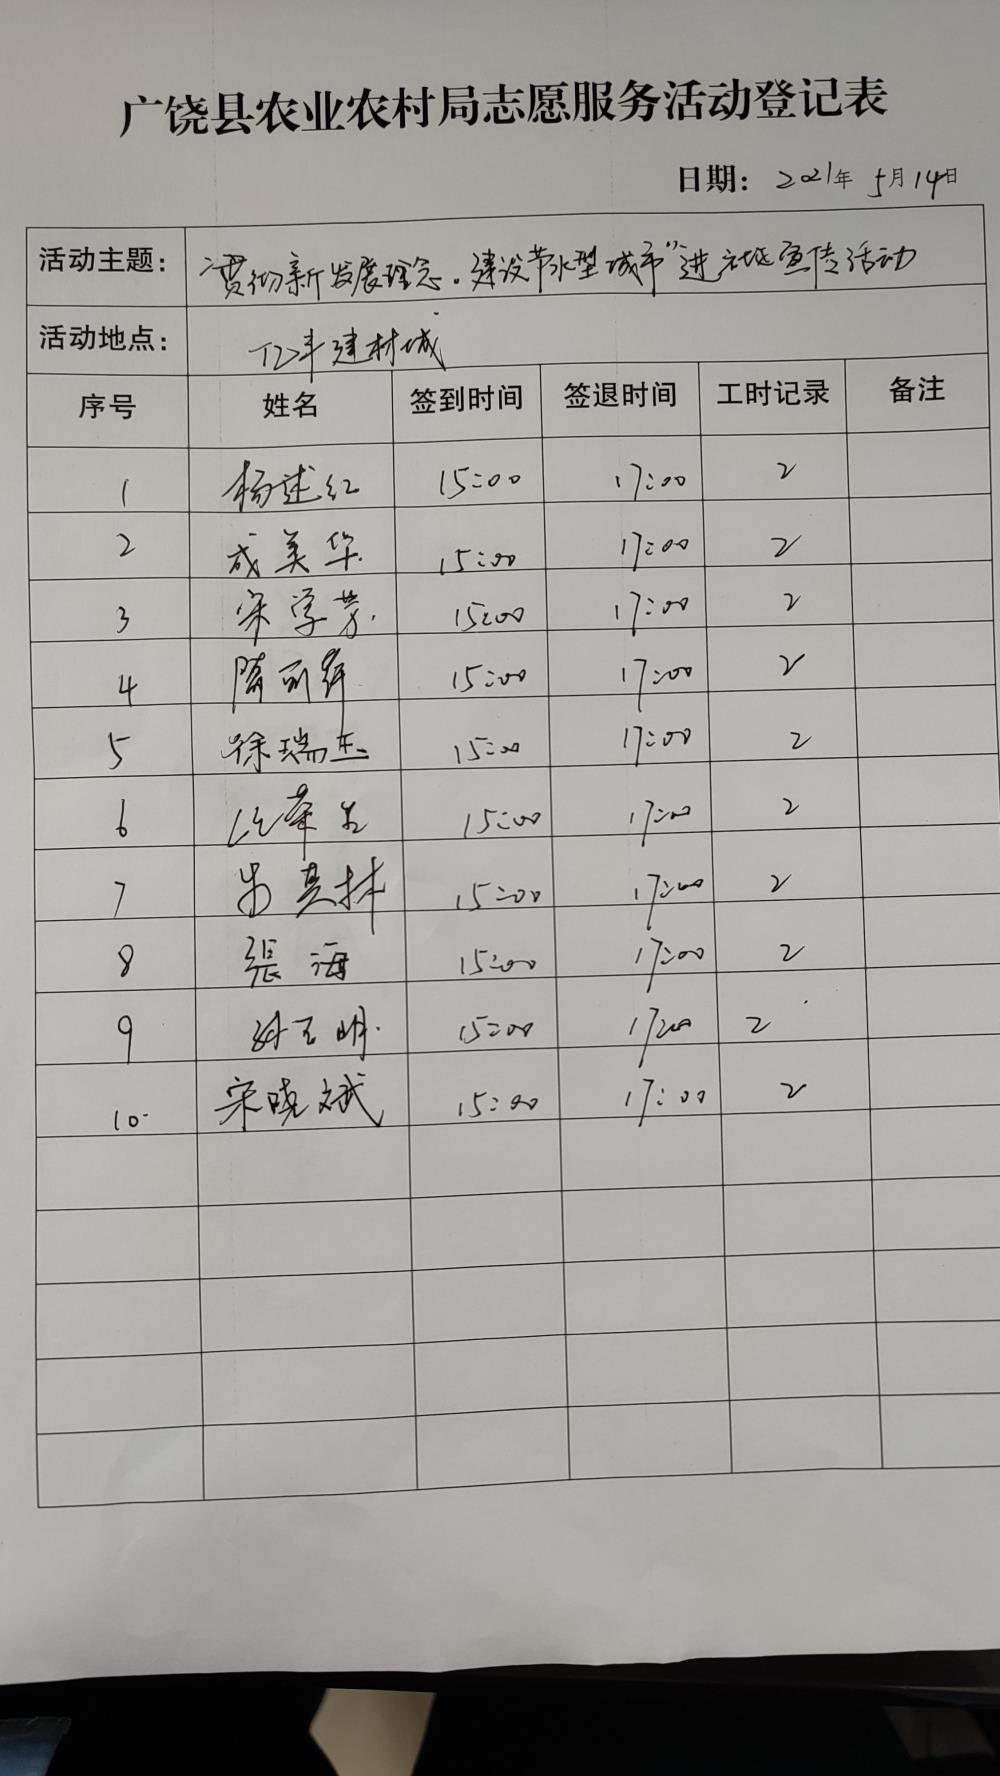 广饶县农业农村局志愿服务活动登记表
日期：2021年 5月14日
活动主题： “贯彻新发展理念。建设节水型城市”进社区宣传活动
活动地点： 建材城
序号 姓名 签到时间 签退时间 工时记录 备注
1 杨述红 15:00 17:00 2
2 成美华 15:00 17:00 2
3 宋学芳 15:00 17:00 2
4 隋丽辉 15:00 17:00 2
5 徐瑞玉 15:00 17:00 2
6 15:00 17:00 2
7 15:00 17:00 2
8 張海 15:00 17:00 2
9 15:00 17:00 2
10 宋晓斌 15:00 17:00 2